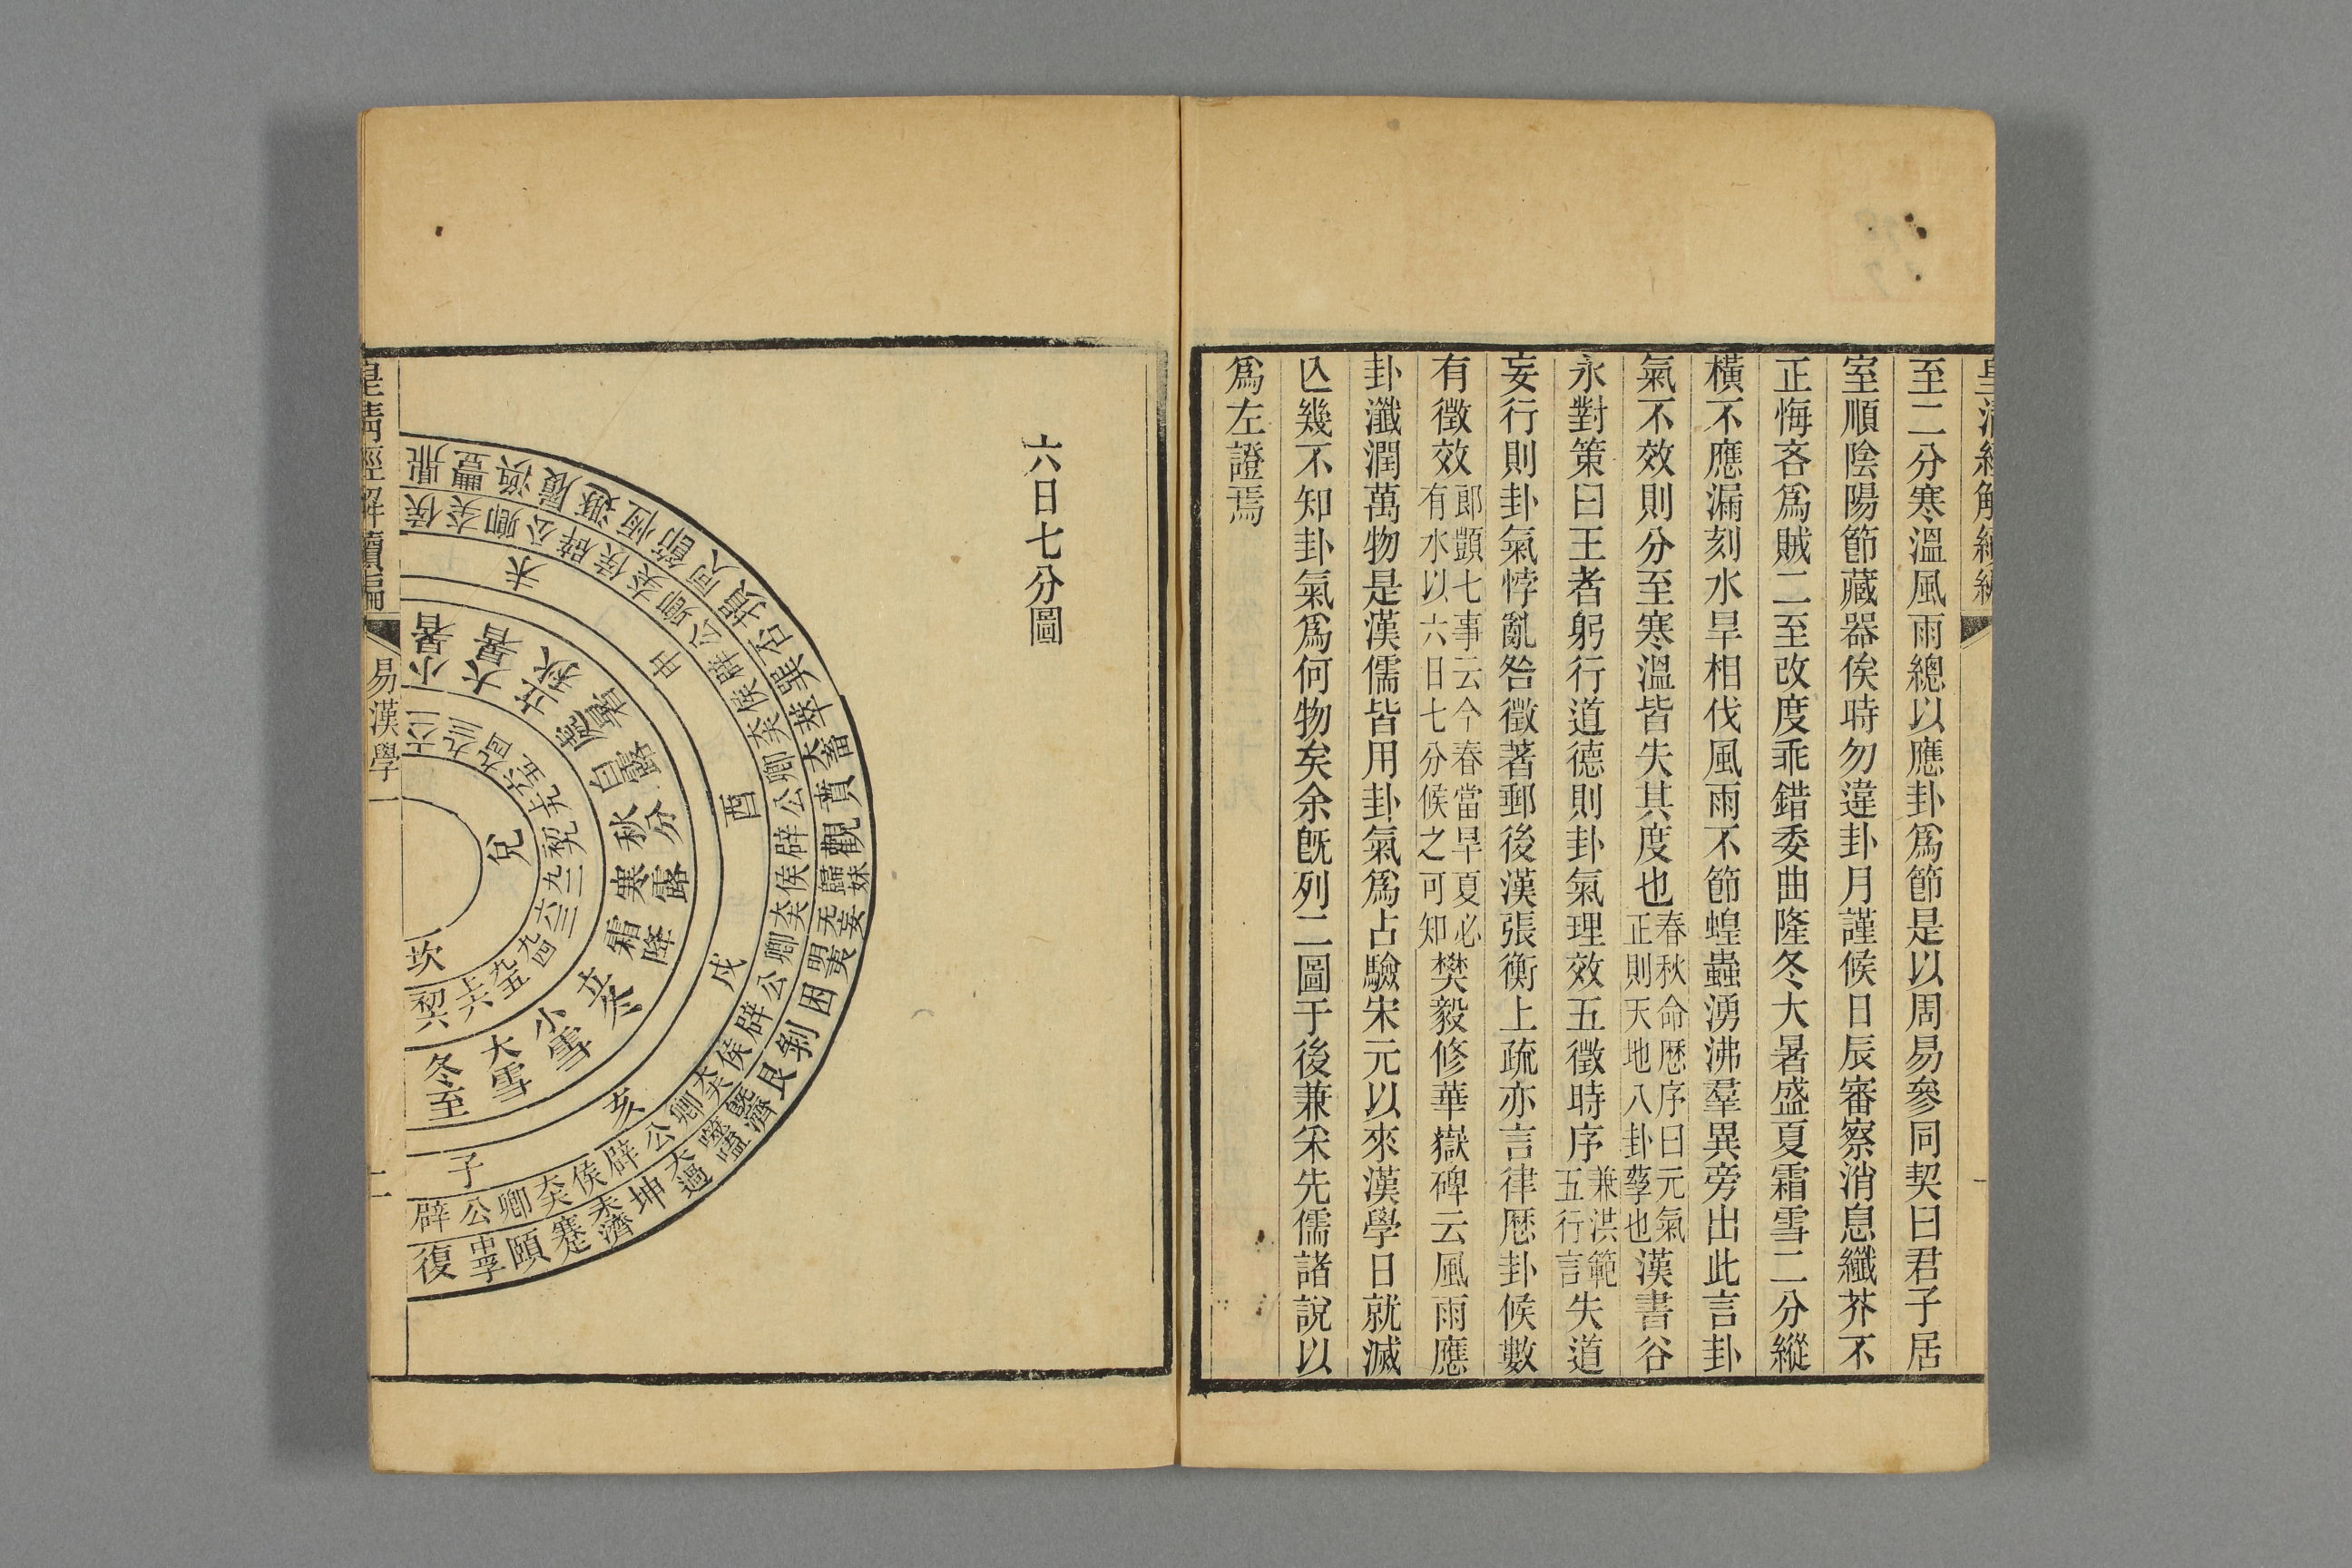 至二分寒溫風雨總以應卦爲節是以周易參同契曰君子居
室順陰陽節藏器俟時勿違卦月謹候日辰審察消息纖芥不
正悔吝爲賊二至改度乖錯委曲隆冬大暑盛夏霜雪二分縱
橫不應漏刻水旱相伐風雨不節蝗蟲湧沸羣異旁出此言卦
氣不效則分至寒溫皆失其度也春秋命歷序曰元氣正則天地八卦孳也漢書谷
永對策曰王者躬行道德則卦氣理效五徵時序兼洪範五行言失道
妄行則卦氣悖亂咎徵著郵後漢張衡上疏亦言律歷卦候數
有徵效郎顗七事云今春當旱夏必有水以六日七分候之可知樊毅修華嶽碑云風雨應
卦瀸潤萬物是漢儒皆用卦氣爲占驗宋元以來漢學日就滅
亾幾不知卦氣爲何物矣余旣列二圖于後兼采先儒諸說以
爲左證焉
六日七分圖
鼎豐渙履遯恆節同人損否巽萃大畜賁觀歸妹无妄明夷困剝艮旣濟噬嗑大過坤未濟蹇頤中孚復
侯大夫卿公辟侯大夫卿公辟侯大夫卿公辟侯大夫卿公辟侯大夫卿公辟侯大夫卿公辟
未申酉戌亥子
小暑大暑立秋處暑白露秋分寒露霜降立冬小雪大雪冬至
六二九三九四六五上九初九九二六三九四九五上六初六
兌坎
皇清經解續編
易漢學一
二